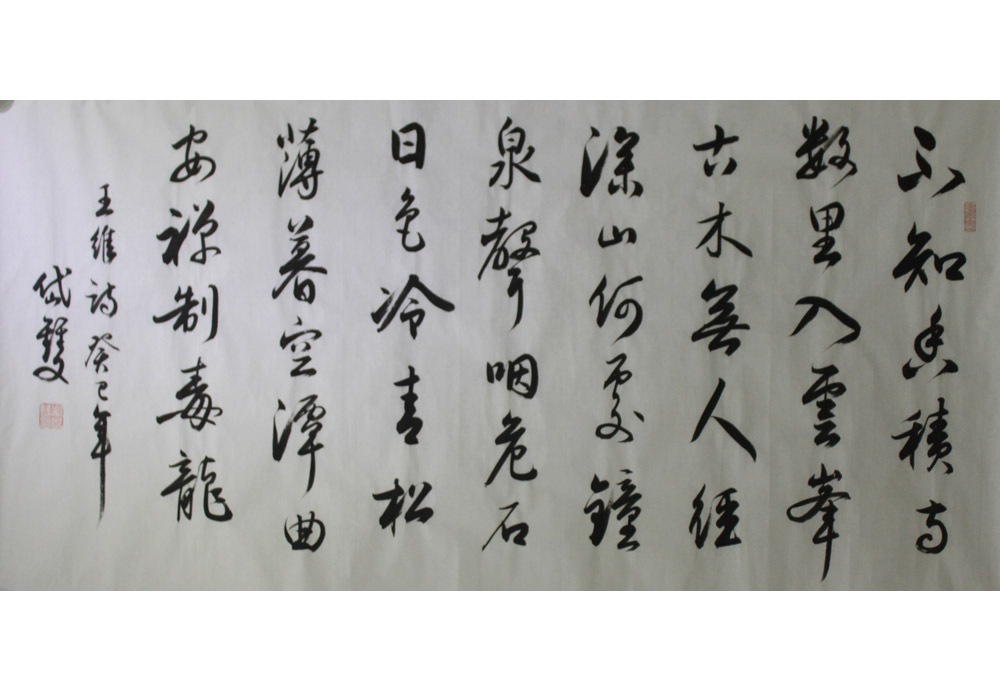 不知香積寺
数里入雲峯
古木無人徑
深山何處鐘
泉聲咽危石
日色冷青松
薄暮空潭曲
安禅制毒龍
王維詩癸巳年
岱雙